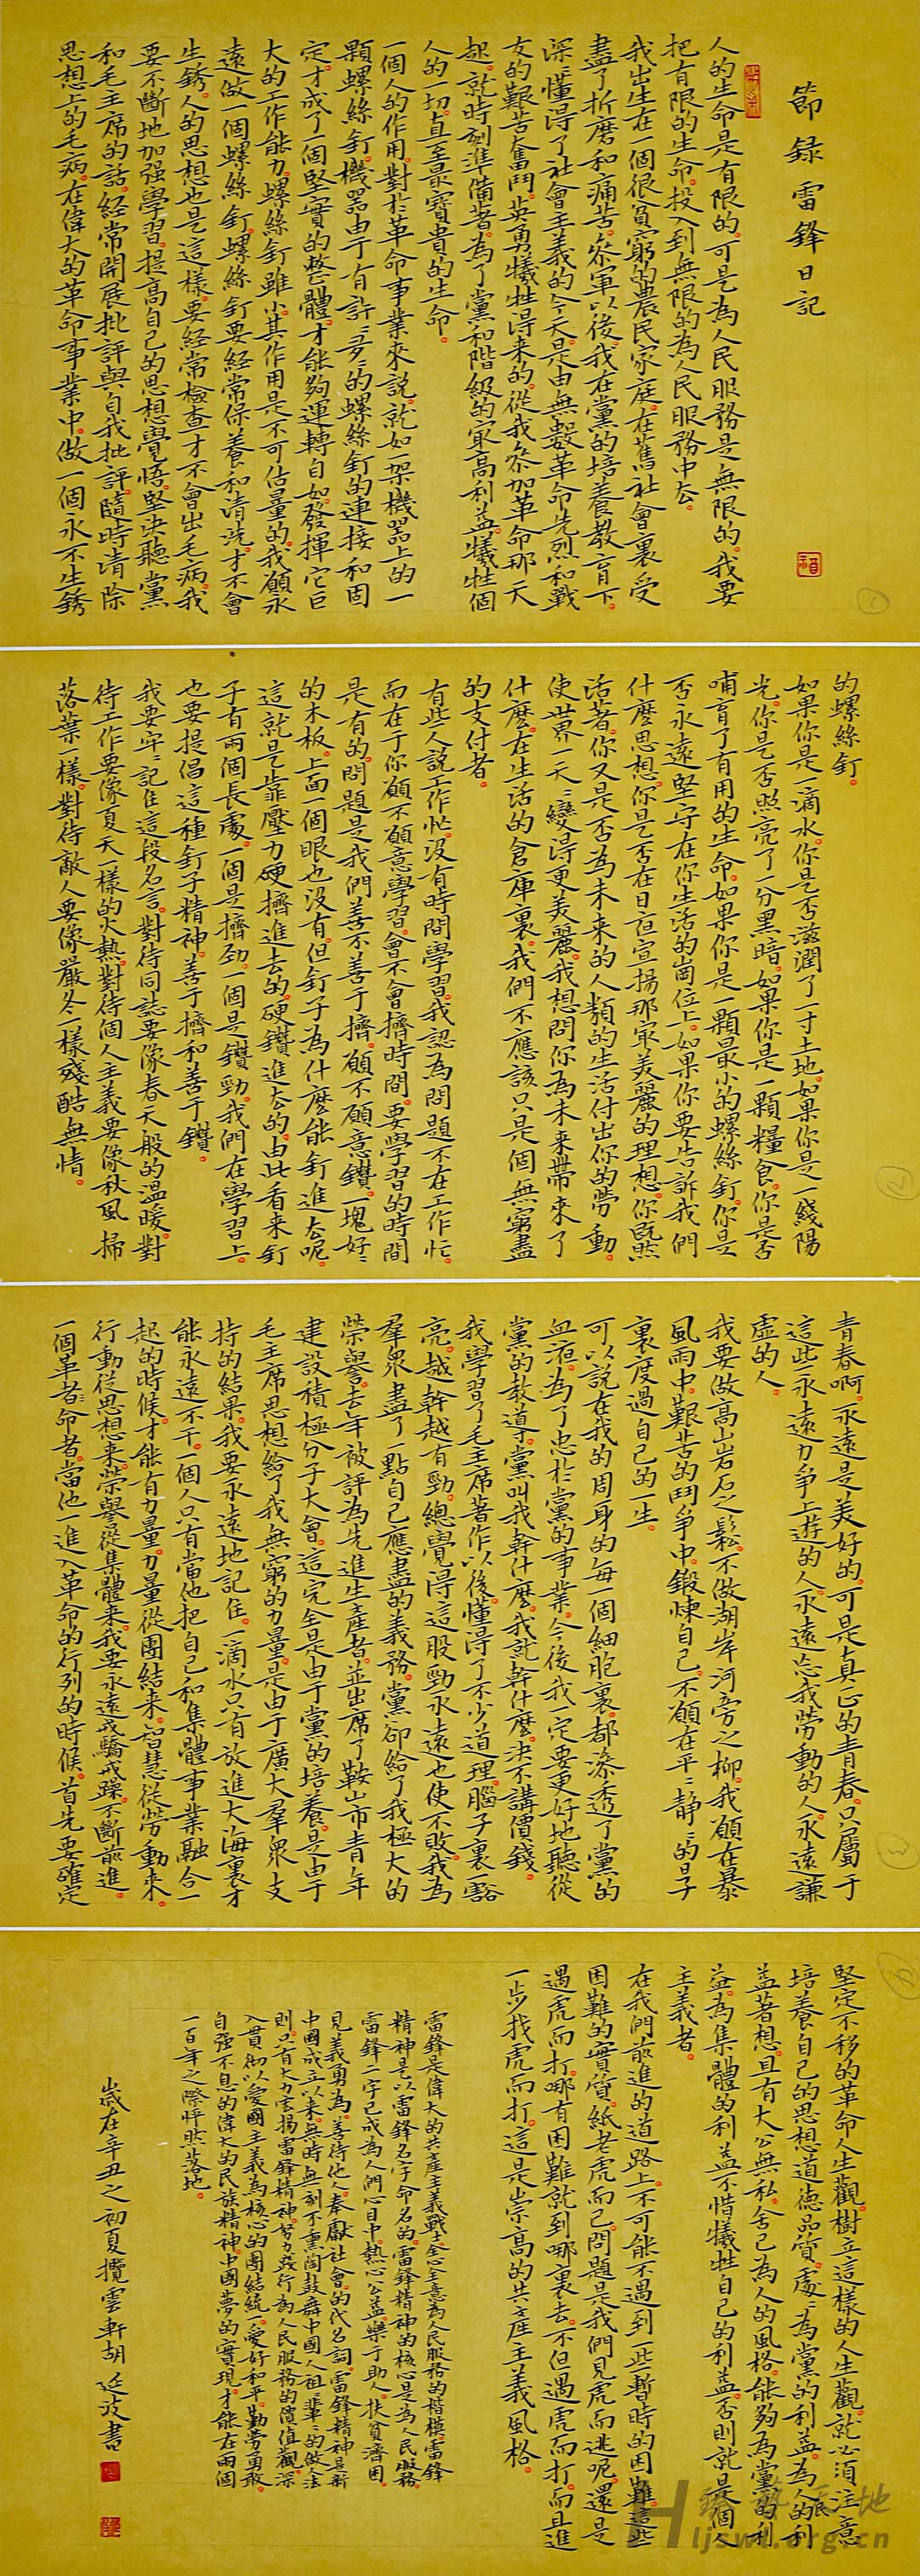 節録雷鋒日記
人的生命是有限的。可是為人民服務是無限的。我要
把有限的生命。投入到無限的為人民服務中去。
我出生在一個很貧窮的農民家庭。在舊社會裏受
盡了折磨和痛苦。參軍以後。我在黨的培養教育下。
深深懂得了社會主義的今天。是由無數革命先烈和戰
友的艱苦奮鬥。英勇犧牲得來的。從我參加革命那一天
起。就時刻準備著。為了黨和階級的最高利益。犧牲個
人的一切。直至最寶貴的生命。
一個人的作用。對於革命事業來説。就如一架機器上的一
顆螺絲釘。機器由于有許許多多的螺絲釘的連接和固
定。才成了一個堅實的整體。才能夠運轉自如。發揮它巨
大的工作能力。螺絲釘雖小。其作用是不可估量的。我願永
遠做一個螺絲釘。螺絲釘要經常保養和清洗。才不會
生銹。人的思想也是這樣。要經常檢查才不會出毛病。我
要不斷地加强學習。提高自己的思想覺悟。堅決聽黨
和毛主席的話。經常開展批評與自我批評。隨時清除
思想上的毛病。在偉大的革命事業中。做一個永不生銹
的螺絲釘。
如果你是一滴水。你是否滋潤了一寸土地。如果你是一綫陽
光。你是否照亮了一分黑暗。如果你是一顆糧食。你是否
哺育了有用的生命。如果你是一顆最小的螺絲釘。你是
否永遠堅守在你生活的崗位上。如果你要告訴我們
什麼思想。你是否在日夜宣揚那最美麗的理想。你既然
活著。你又是否為未來的人類的生活付出你的勞動。
使世界一天天變得更美麗。我想問你為未來帶來了
什麼。在生活的倉庫裏。我們不應該只是個無窮盡
的支付者。
有些人説工作忙。沒有時間學習。我認為問題不在工作忙。
而在于你願不願意學習。會不會擠時間。要學習的時間
是有的。問題是我們善不善于擠。願不願意鑽。一塊好好
的木板。上面一個眼也沒有。但釘子為什麼能釘進去呢。
這就是靠壓力硬擠進去的。硬鑽進去的。由此看來釘
子有兩個長處。一個是擠勁。一個是鑽勁。我們在學習上。
也要提倡這種釘子精神。善于擠和善于鑽。
我要牢牢記住這段名言。對待同誌要像春天般的溫暖。對
待工作要像夏天一樣的火熱。對待個人主義要像秋風掃
落葉一樣。對待敵人要像嚴冬一樣殘酷無情。
青春啊。永遠是美好的。可是真正的青春。只屬于
這些永遠力爭上游的人。永遠忘我勞動的人。永遠謙
虛的人。
我要做高山岩石之鬆。不做湖岸河旁之柳。我願在暴
風雨中。艱苦的鬥爭中。鍛煉自己。不願在平平静静的日子
裏度過自己的一生。
可以説在我的周身的每一個細胞裏。都滲透了黨的
血液。為了忠於黨的事業。今後我一定要更好地聽從
黨的教導。黨叫我幹什麼。我就幹什麼。決不講價錢。
我學習了毛主席著作以後。懂得了不少道理。腦子裏一豁
亮。越幹越有勁。總覺得這股勁永遠也使不敗。我為
羣衆盡了一點自己應盡的義務。黨卻給了我極大的
榮譽。去年被評為先進生產者。並出席了鞍山市青年
建設積極分子大會。這完全是由于黨的培養。是由于
毛主席思想給了我無窮的力量。是由于廣大羣衆支
持的結果。我要永遠地記住。一滴水只有放進大海裏才
能永遠不干。一個人只有當他把自己和集體事業融合一
起的時候。才能有力量。力量從團結來。智慧從勞動來。
行動從思想來。榮譽從集體來。我要永遠戒驕戒躁。不斷前進。
一個革命者。當他一進入革命的行列的時候。首先要確定
堅定不移的革命人生觀。樹立這樣的人生觀。就必須注意
培養自己的思想道德品質。處處為黨的利益。為人民的利
益著想。且有大公無私。舍己為人的風格。能夠為黨的利
益。為集體的利益不惜犧牲自己的利益。否則就是個人
主義者。
在我們前進的道路上。不可能不遇到一些暫時的困難。這些
困難的實質。紙老虎而已。問題是我們見虎而逃呢。還是
遇虎而打。哪有困難就到哪裏去。不但遇虎而打。而且進
一步找虎而打。這是崇高的共產主義風格。
雷鋒是偉大的共產主義戰士。全心全意為人民服務的楷模。雷鋒
精神是以雷鋒名字命名的。雷鋒精神的核心是為人民服務
雷鋒二字已成為人們心目中。熱心公益。樂于助人。扶貧濟困。
見義勇為。善待他人。奉獻社會的代名詞。雷鋒精神是新
中國成立以來。無時無刻不熏陶鼓舞中國人祖祖輩輩的做人法
則。只有大力宏揚雷鋒精神。努力踐行為人民服務的價值觀。深
入貫徹以愛國主義為核心的團結統一。愛好和平。勤勞勇敢。
自强不息的偉大的民族精神。中國夢的實現。才能在兩個
一百年之際怦然落地。
歲在辛丑之初夏攬雲軒胡延波書
ljswl.org.cn